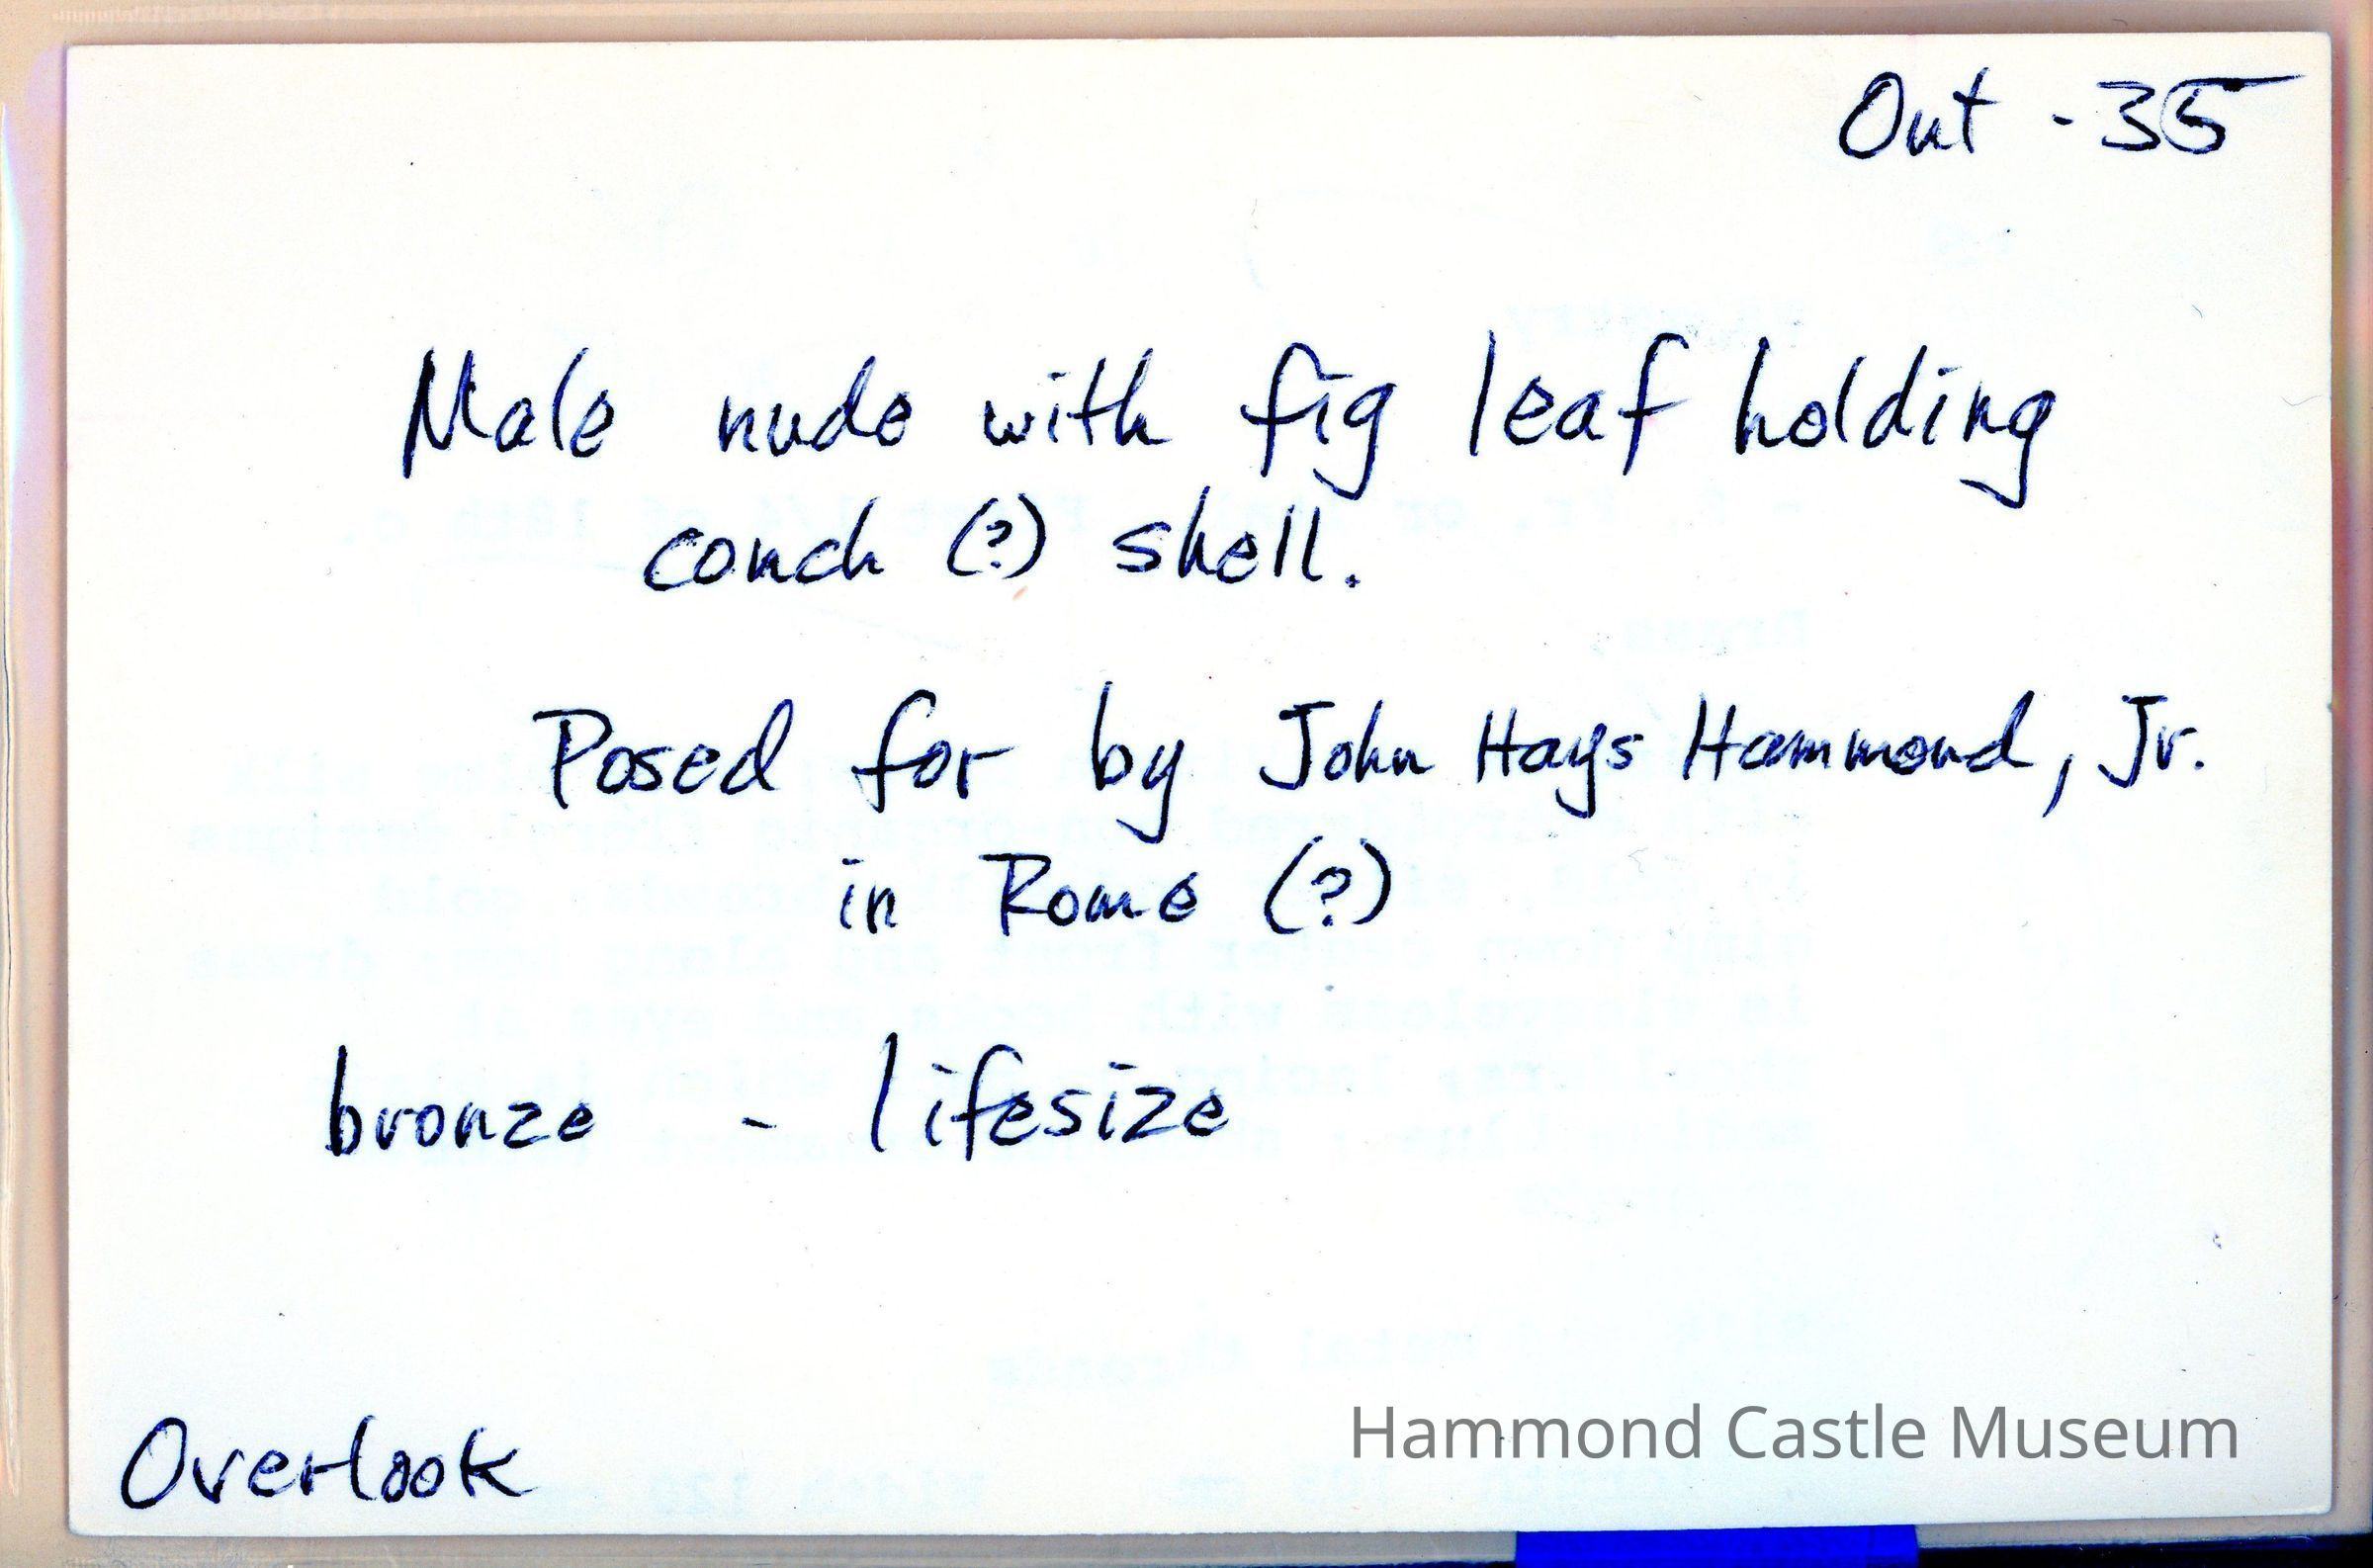 Out - 35
Male nude with fig leaf holding
conch (?) shell.
Posed for by John Hays Hammond, Jr.
in Rome (?)
bronze - lifesize
Overlook
Hammond Castle Museum